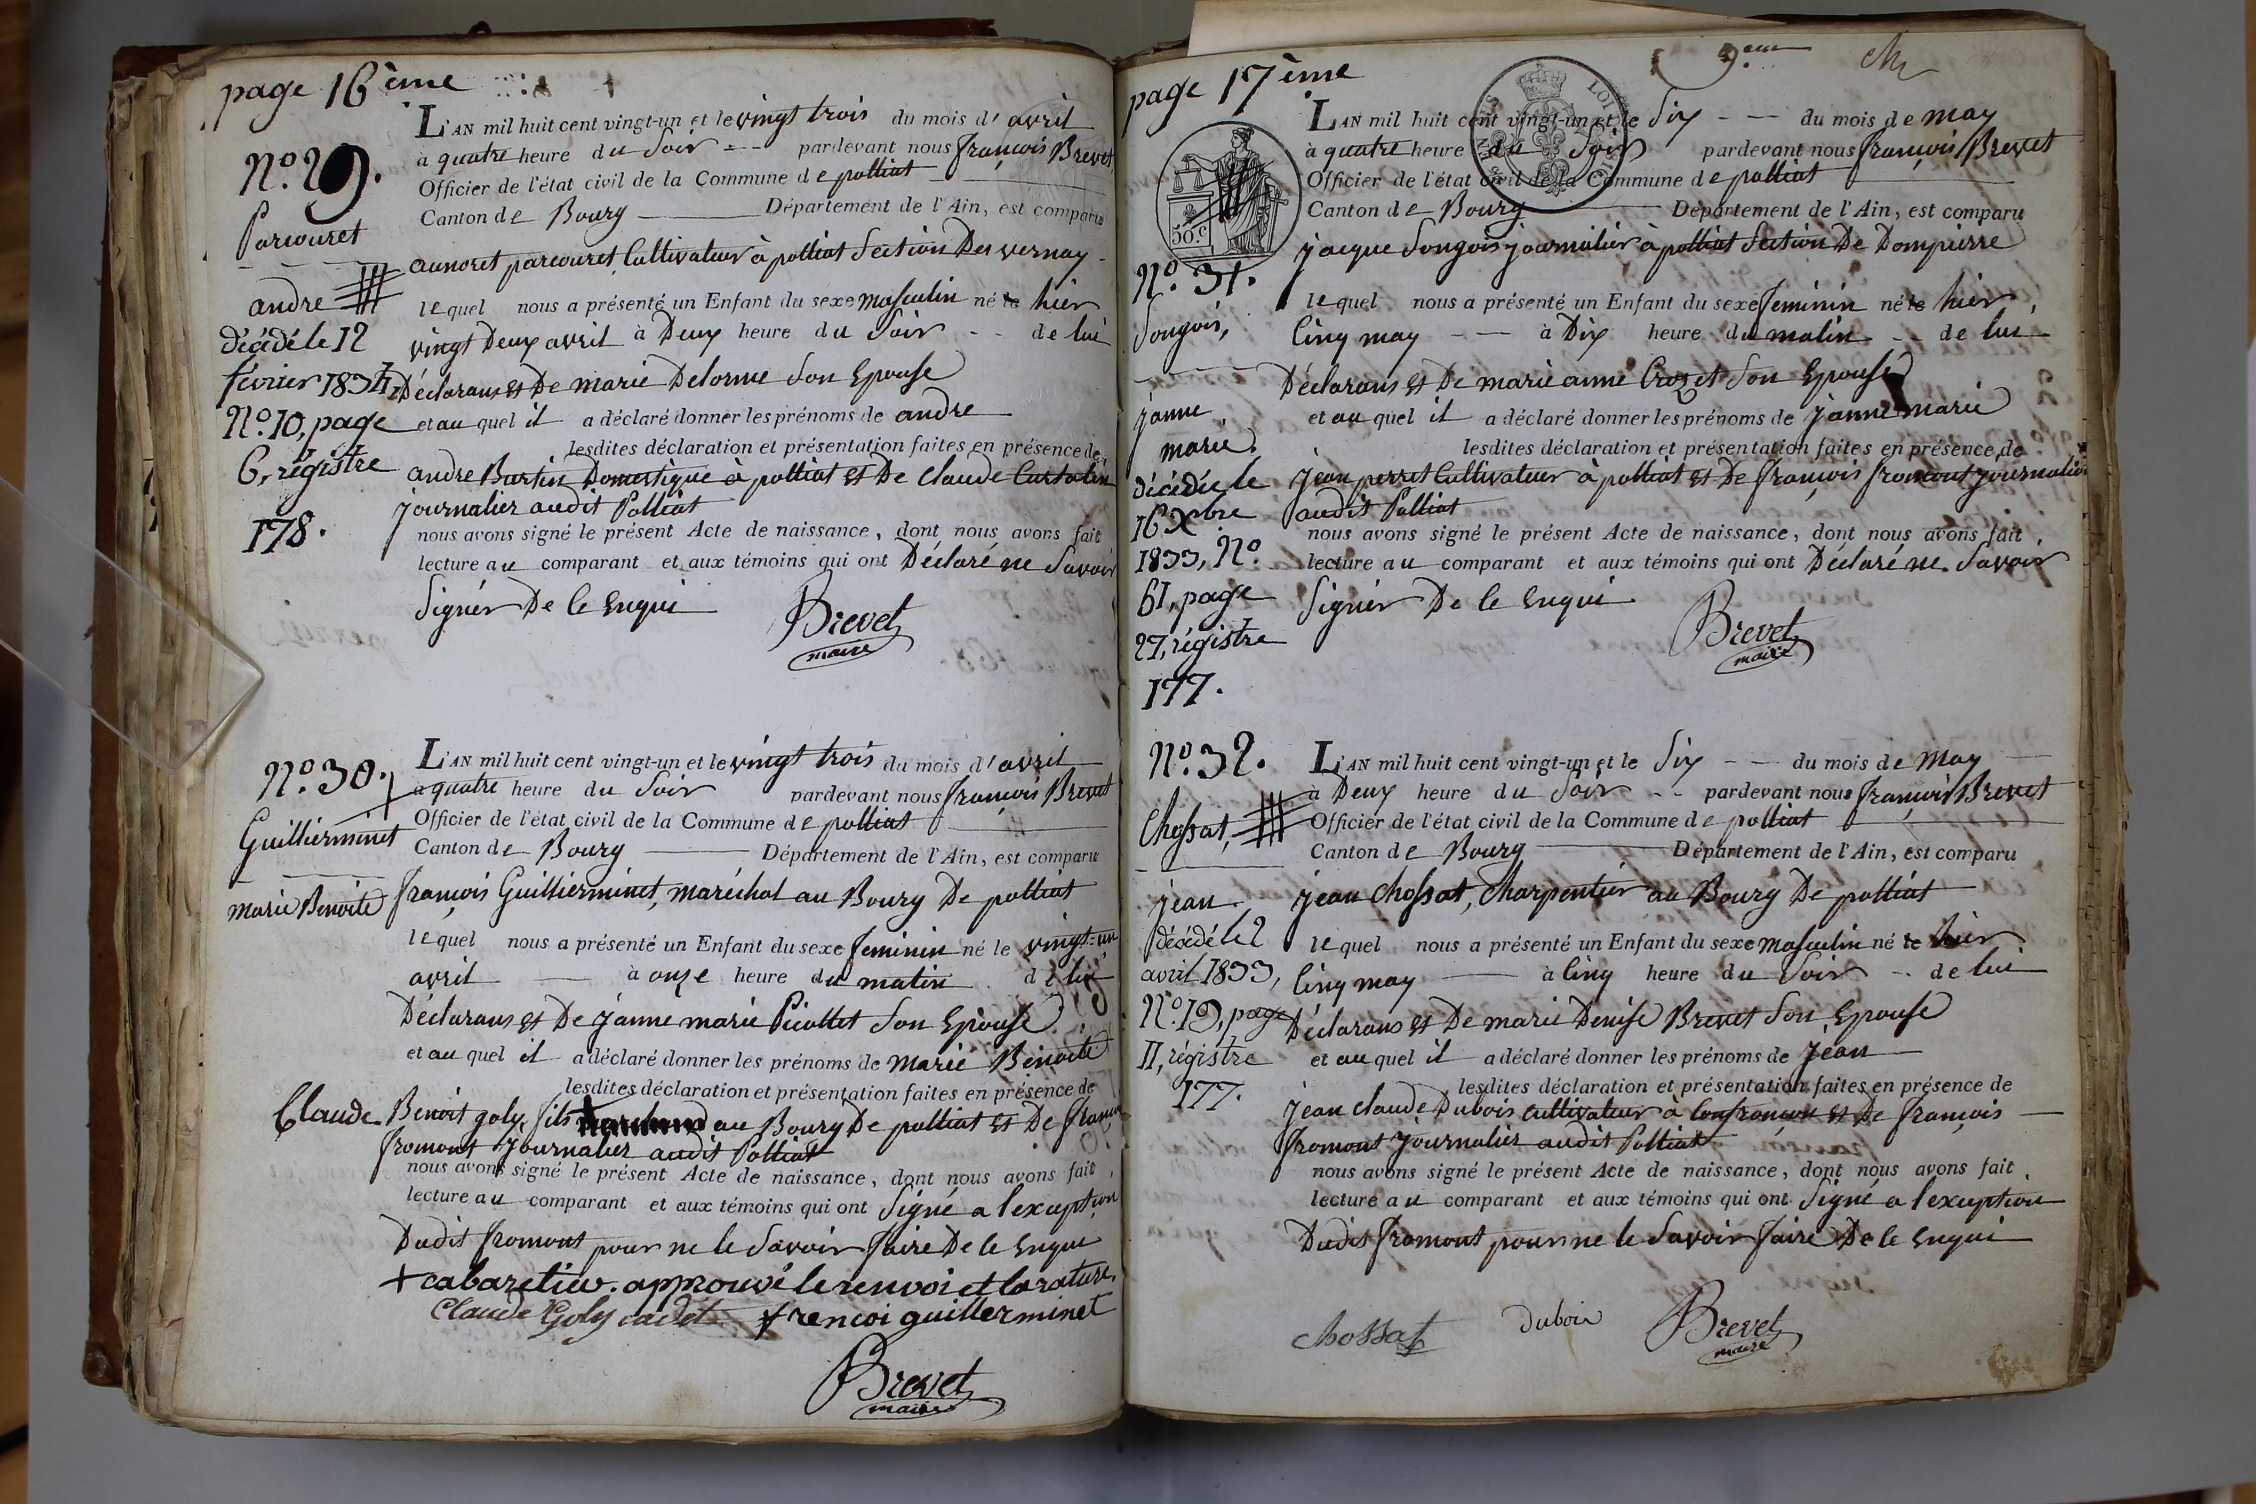 page 16ème
N.º 29.
Parcouret
andre
décédé le 12
février 1834,
N.º 10, page
6, régistre
178.
L'AN mil huit cent vingt-un et le vingt trois du mois d'avril
à quatre heure du Soir pardevant nous françois Brevet
Officier de l'état civil de la Commune de polliat
Canton de Bourg Département de l'Ain, est comparu
parcouret, Cultivateur à polliat Section Des vernay
lequel nous a présenté un Enfant du sexe masculin né le hier
vingt Deux avril à Deux heure du Soir de lui
Déclarans et De marie Delorme Son Epouse
et au quel il a déclaré donner les prénoms de andre
lesdites déclaration et présentation faites en présence de
andre Burtin Domestique à polliat et De Claude
journalier audit Polliat
nous avons signé le présent Acte de naissance, dont nous avons fait
lecture au comparant et aux témoins qui ont Déclaré ne Savoir
Signer De le Enqui
Brevet
maire
N.º 30.
Guillierminet
marie Benoite
L'AN mil huit cent vingt-un et le vingt trois du mois d'avril
à quatre heure du Soir pardevant nous françois Brevet
Officier de l'état civil de la Commune de polliat
Canton de Bourg Département de l'Ain, est comparu
françois Guillierminet, maréchal au Bourg De polliat
lequel nous a présenté un Enfant du sexe feminin né le vingt-un
avril à onze heure du matin de lui
Déclarans et De janne marie Picollet Son Epouse
et au quel il a déclaré donner les prénoms de marie Benoite
lesdites déclaration et présentation faites en présence de
Claude Benoit goly, fils + au Bourg De polliat et De françois
fromont journalier audit Polliat
nous avons signé le présent Acte de naissance, dont nous avons fait
lecture au comparant et aux témoins qui ont Signé a l'exception
Dudit fromont pour ne le Savoir faire De le Enqui
+ cabaretier. approuvé le renvoi et la rature.
Claude Goly cadet frencoi guillerminet
Brevet
maire
page 17ème
9.eme
50.c
N.º 31.
Songois,
janne
marie.
décédée le
16 Xbre
1833, N.º
61, page
27, régistre
177.
L'AN mil huit cent vingt-un et le Six du mois de may
à quatre heure du Soir pardevant nous françois Brevet
Officier de l'état civil de la Commune de polliat
Canton de Bourg Département de l'Ain, est comparu
jacque Songois journalier à polliat Section De Dompierre
lequel nous a présenté un Enfant du sexe feminin né le hier,
Cinq may à Dix heure du matin de lui
Déclarans et De marie anne Crozet Son Epouse
et au quel il a déclaré donner les prénoms de janne marie
lesdites déclaration et présentation faites en présence de
jean perret Cultivateur à polliat et De françois fromont journalier
audit Polliat
nous avons signé le présent Acte de naissance, dont nous avons fait
lecture au comparant et aux témoins qui ont Déclaré ne Savoir
Signer De le Enqui
Brevet
maire
N.º 32.
Chossat,
jean
décédé le 2
avril 1833,
N.º 19, page
11, régistre
177.
L'AN mil huit cent vingt-un et le Six du mois de may
à Deux heure du Soir pardevant nous françois Brevet
Officier de l'état civil de la Commune de polliat
Canton de Bourg Département de l'Ain, est comparu
jean Chossat, Charpentier au Bourg De polliat
lequel nous a présenté un Enfant du sexe masculin né le hier
Cinq may à Cinq heure du Soir de lui
Déclarans et De marie Denise Brevet Son Epouse
et au quel il a déclaré donner les prénoms de Jean
lesdites déclaration et présentation faites en présence de
jean claude Dubois cultivateur à Confrançon et De françois
fromont journalier audit Polliat
nous avons signé le présent Acte de naissance, dont nous avons fait
lecture au comparant et aux témoins qui ont Signé a l'exception
Dudit fromont pour ne le Savoir faire De le Enqui
chossat dubois Brevet
maire